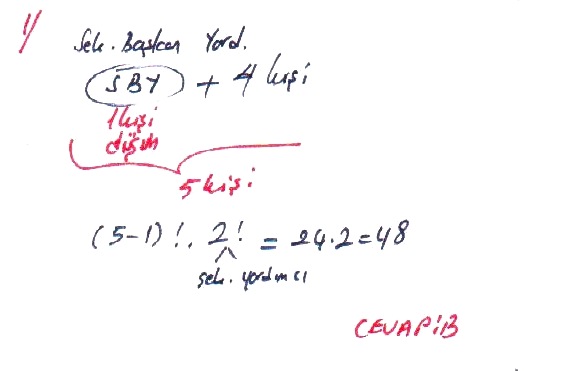 1/ Sek. Başkan Yard.
SBY + 4 kişi
1 kişi
düşün
5 kişi
(5-1)!. 2! = 24.2=48
sek. yardımcı
CEVAP:B